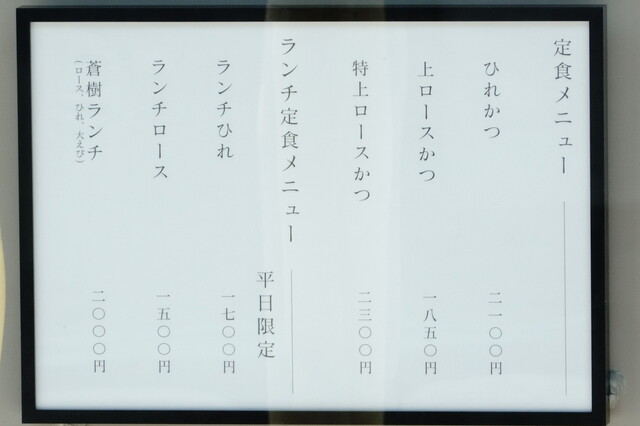 定食メニュー
ひれかつ 二一〇〇円
上ロースかつ 一八五〇円
特上ロースかつ 二三〇〇円
ランチ定食メニュー
平日限定
ランチひれ 一七〇〇円
ランチロース 一五〇〇円
蒼樹ランチ 二〇〇〇円
(ロース、ひれ、大えび)